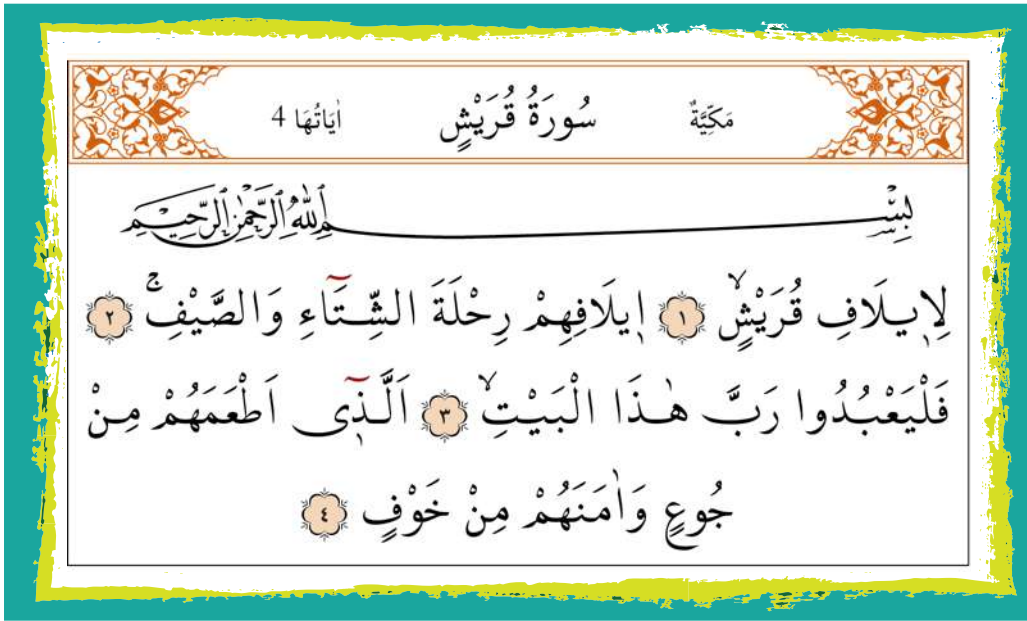 مَكِّيَّةٌ سُورَةُ قُرَيْشٍ اٰيَاتُهَا 4
بِسْمِ اللّٰهِ الرَّحْمٰنِ الرَّحِيمِ
لِا۪يلَافِ قُرَيْشٍۙ ﴿١﴾ ا۪يلَافِهِمْ رِحْلَةَ الشِّتَٓاءِ وَالصَّيْفِۚ ﴿٢﴾
فَلْيَعْبُدُوا رَبَّ هٰذَا الْبَيْتِۙ ﴿٣﴾ اَلَّذ۪ٓى اَطْعَمَهُمْ مِنْ
جُوعٍ وَاٰمَنَهُمْ مِنْ خَوْفٍ ﴿٤﴾